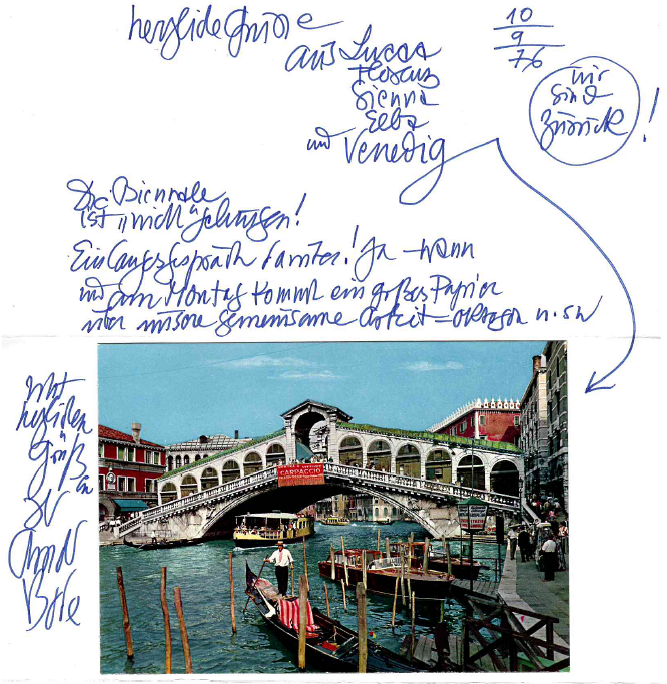 herzliche Grüße
aus Lucca
Florenz
Sienna
Elba
und Venedig
10
9
76
wir
sind
zurück
!
Die Biennale
ist „nicht“ gelungen!
Ein langes Gespräch ! Ja - wann
und am Montag kommt ein großes Papier
über unsere gemeinsame Arbeit - u. sw
mit
herzlichen
Grüßen
CARPACCIO